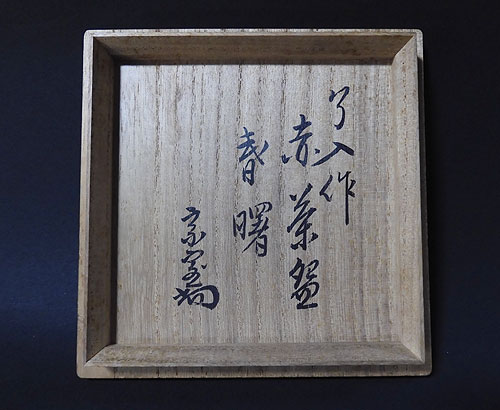 了入作
赤茶盌
春曙
宗室